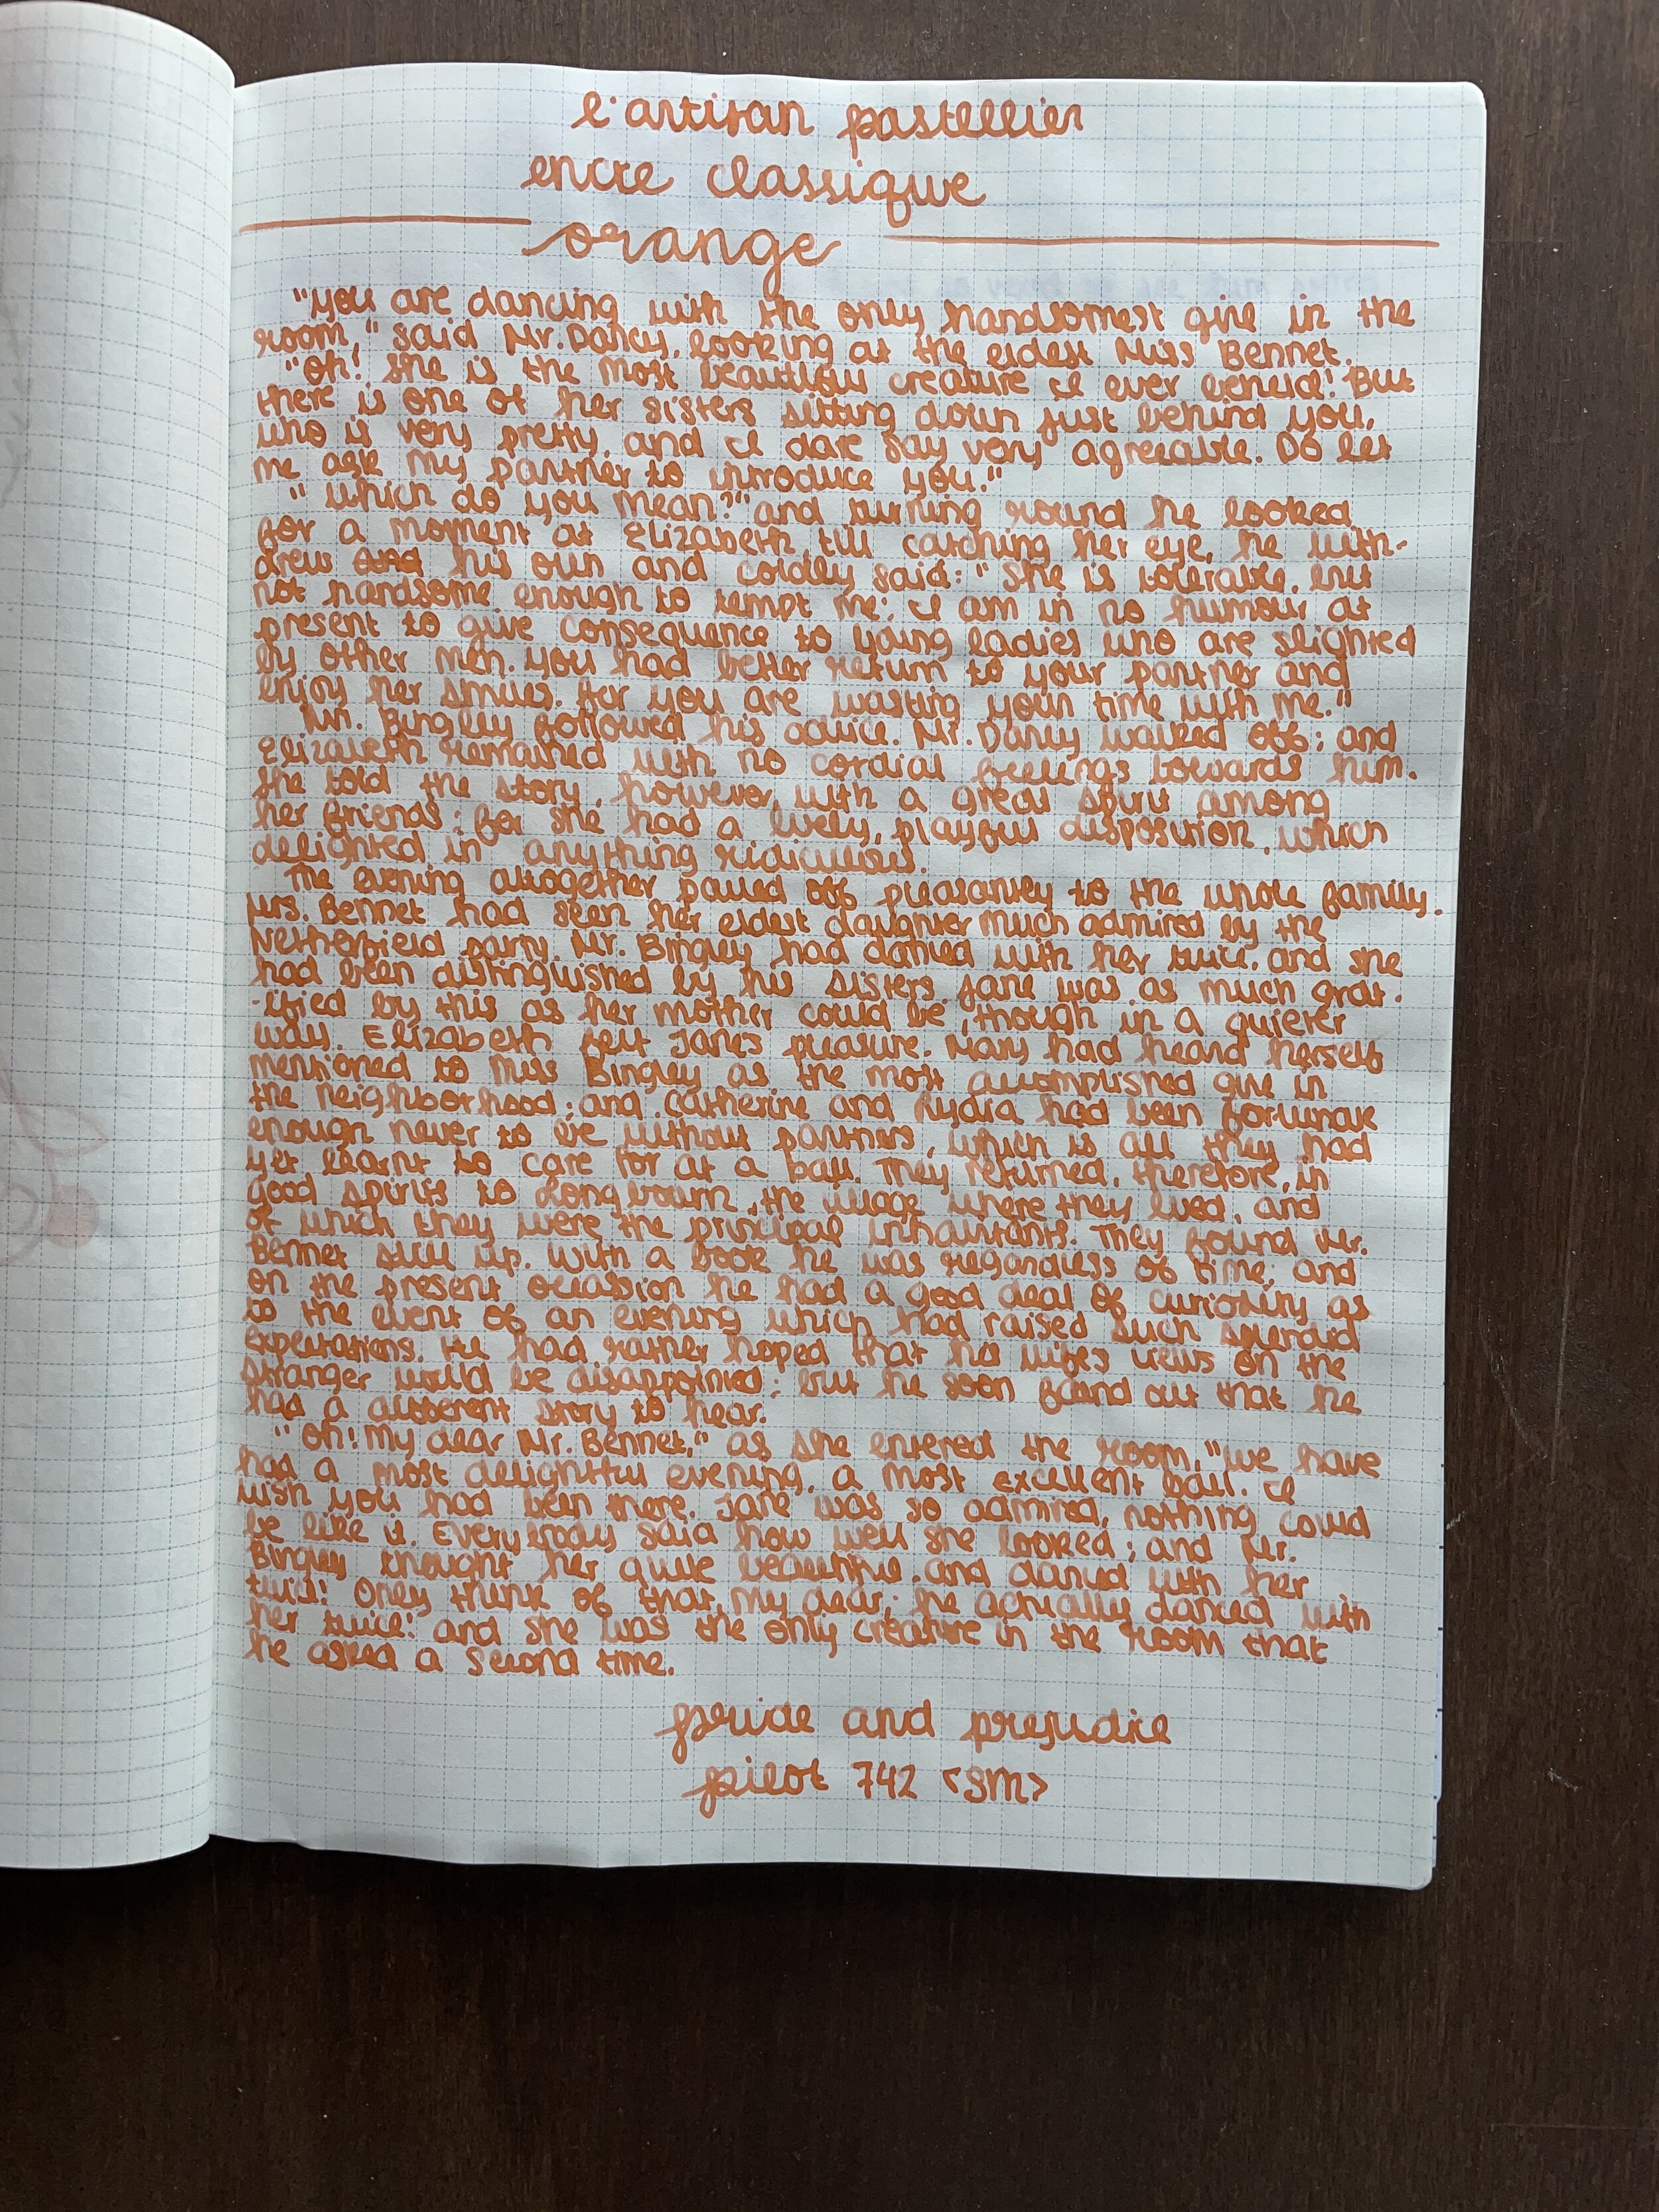 l'artisan pastellier
encre classique
orange
"you are dancing with the only handsomest girl in the
room," said Mr. Darcy, looking at the eldest Miss Bennet.
"Oh! she is the most beautiful creature I ever beheld! But
there is one of her sisters sitting down just behind you,
who is very pretty, and I dare say very agreeable. Do let
me ask my partner to introduce you."
"Which do you mean?" and turning round he looked
for a moment at Elizabeth, till catching her eye, he with-
drew his own and coldly said: "She is tolerable, but
not handsome enough to tempt me; I am in no humour at
present to give consequence to young ladies who are slighted
by other men. You had better return to your partner and
enjoy her smiles, for you are wasting your time with me."
Mr. Bingley followed his advice. Mr. Darcy walked off; and
Elizabeth remained with no cordial feelings towards him.
She told the story, however, with a great spirit among
her friends; for she had a lively, playful disposition, which
delighted in anything
The evening altogether passed off pleasantly to the whole family.
Mrs. Bennet had seen her eldest daughter much admired by the
Netherfield party. Mr. Bingley had danced with her twice, and she
had been distinguished by his sisters. Jane was as much grat-
-ified by this as her mother could be, though in a quieter
way. Elizabeth felt Jane's pleasure. Mary had heard herself
mentioned to Miss Bingley as the most accomplished girl in
the neighborhood; and Catherine and Lydia had been fortunate
enough never to be without partners, which is all they had
yet learnt to care for at a ball. They returned, therefore, in
good spirits to Longbourn, the village where they lived, and
of which they were the principal inhabitants. They found Mr.
Bennet still up. With a book he was regardless of time; and
on the present occassion he had a good deal of curiosity as
to the event of an evening which had raised such splendid
expectations. He had rather hoped that his wife's views on the
stranger would be disappointed; but he soon found out that he
had a different story to hear.
"Oh! my dear Mr. Bennet," as she entered the room, "we have
had a most delightful evening, a most excellent ball. I
wish you had been there. Jane was so admired, nothing could
be like it. Everybody said how well she looked; and Mr.
Bingley thought her quite beautiful, and danced with her
twice! Only think of that, my dear; he actually danced with
her twice! and she was the only creature in the room that
he asked a second time.
pride and prejudice
pilot 742 <SM>